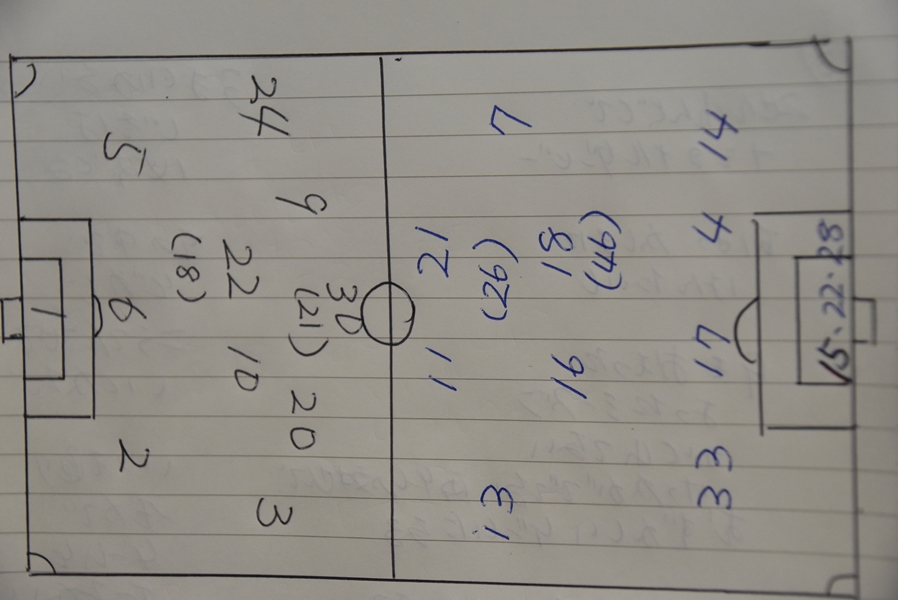 24
5
9
22
(18)
30
(21)
6
1
10
20
2
3
7
14
21
(26)
18
(46)
4
15.22.28
11
16
17
13
33